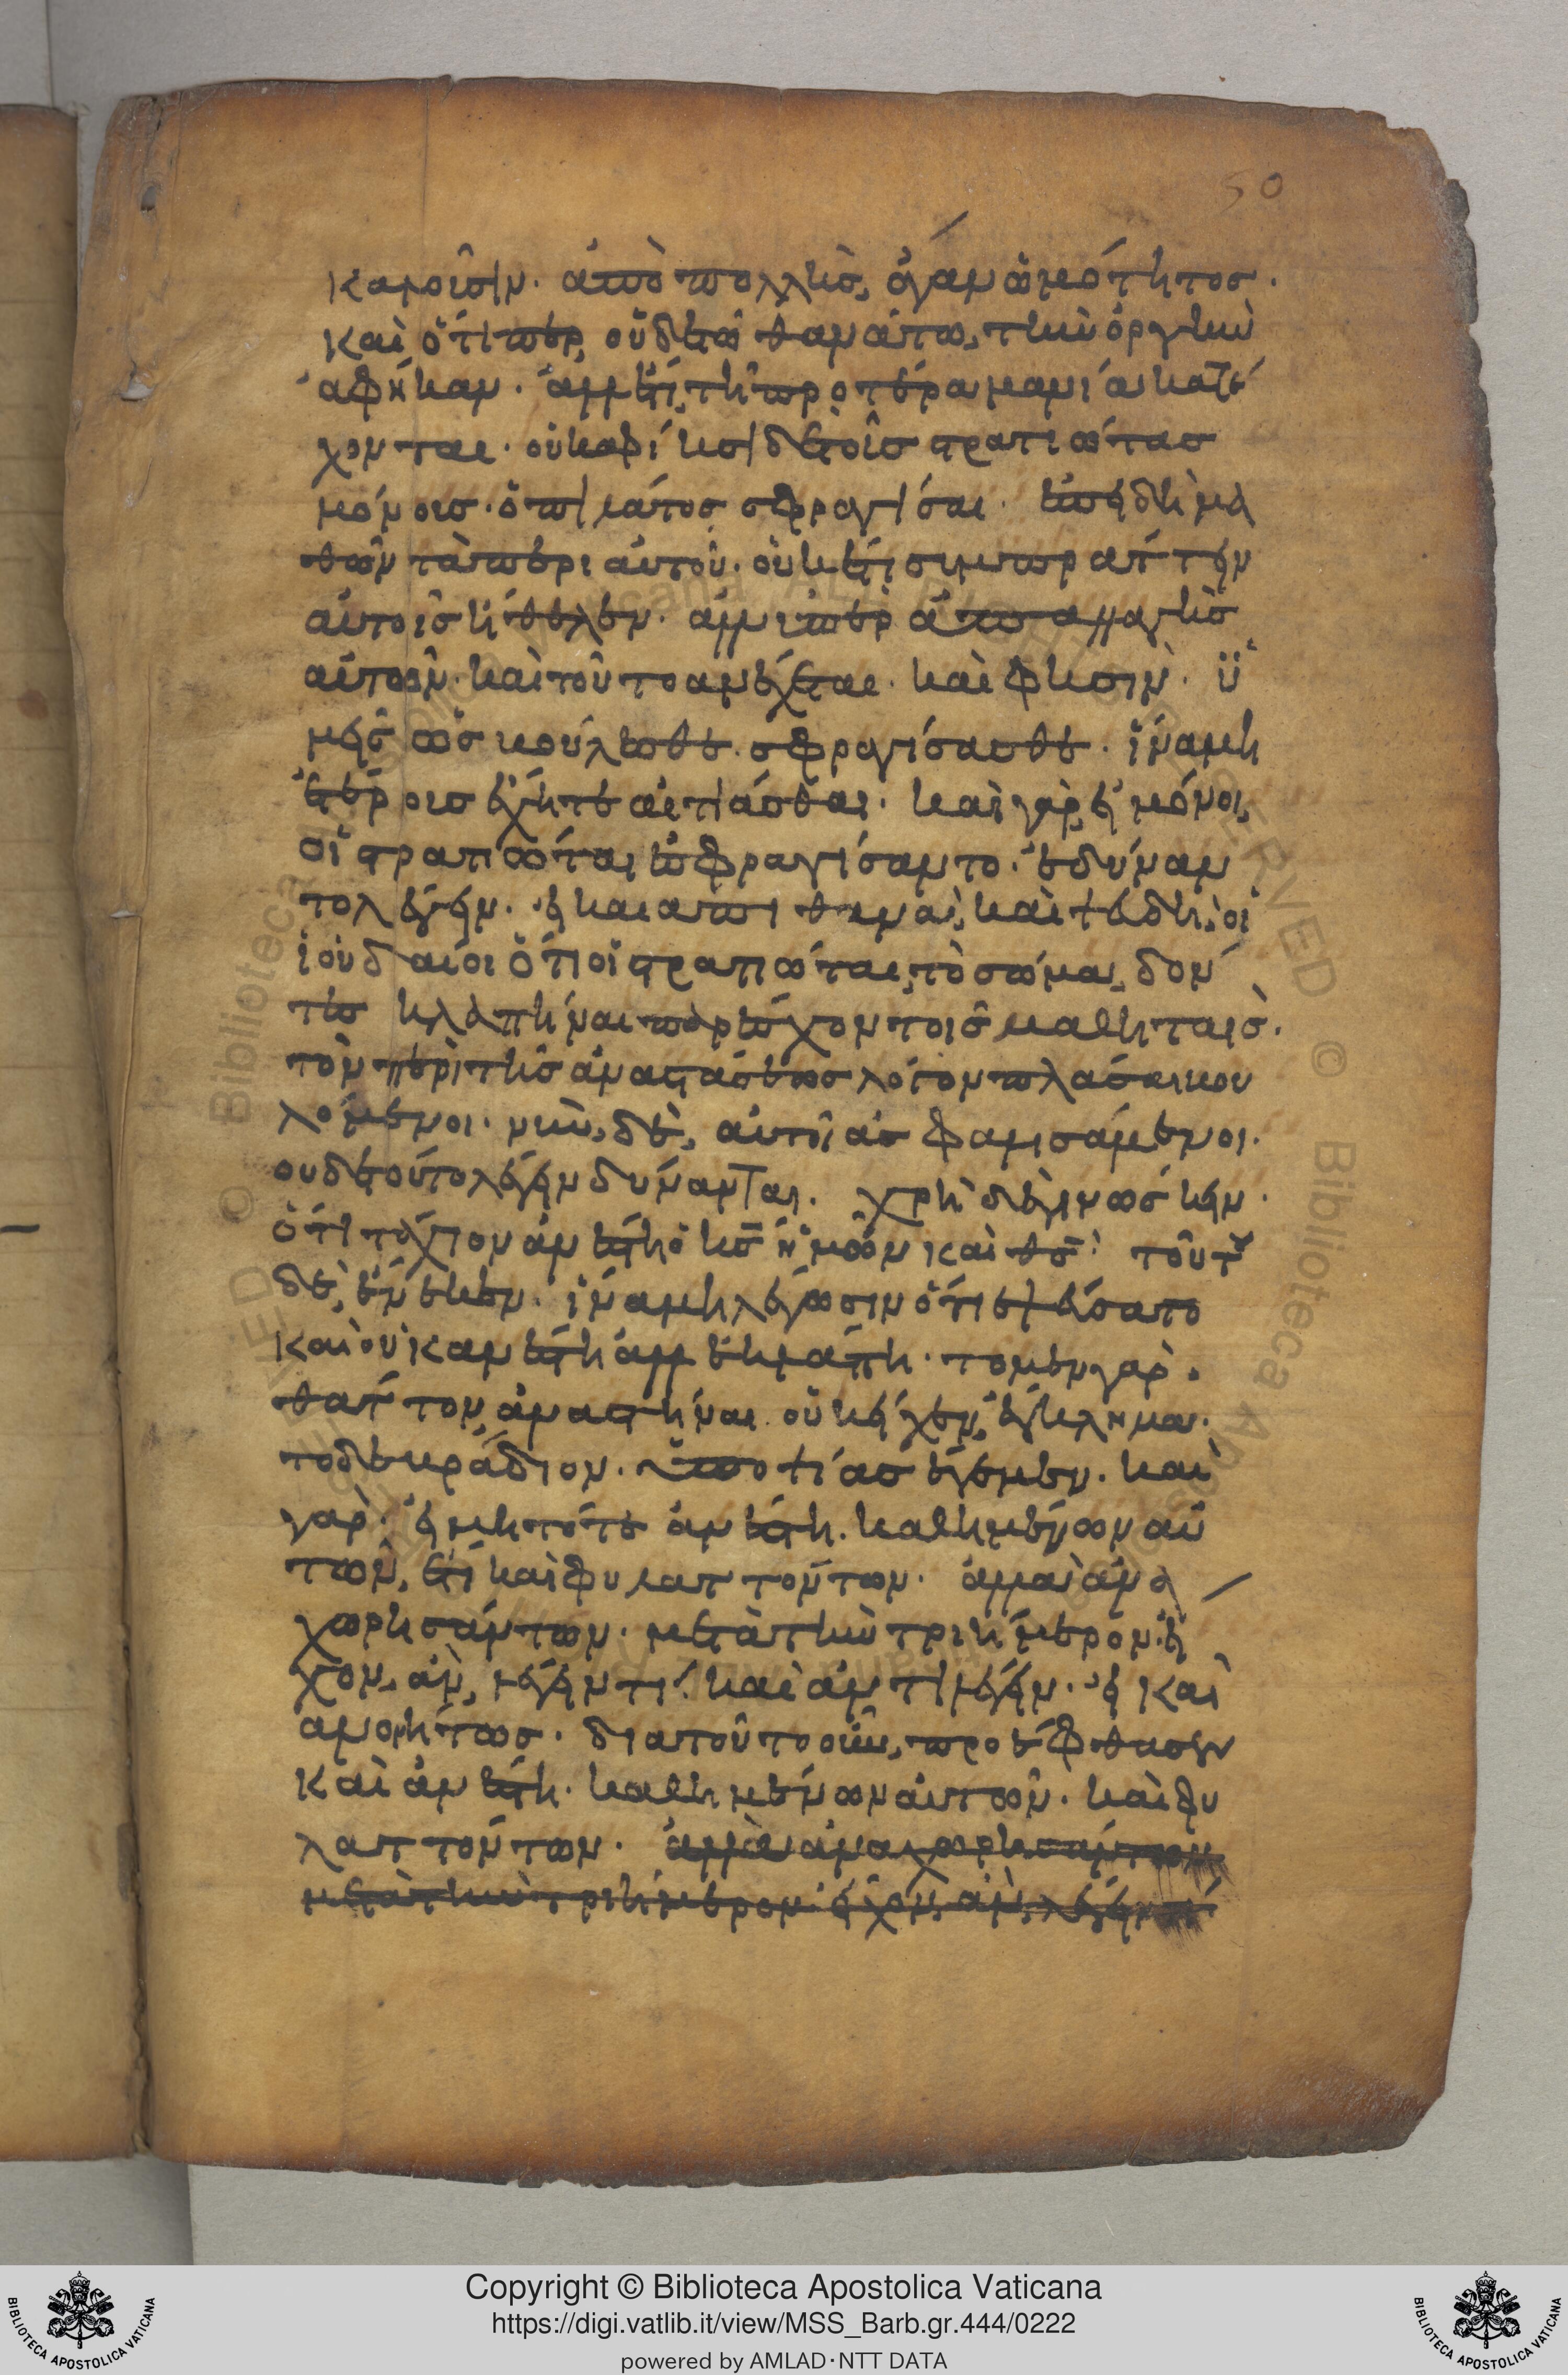 50
κανοῖσιν. ἀπὸ πολλῆς, ἀγανωμότητος.
καὶ ὅτιπερ, οὐδὲ τῶ θανάτω, τὴν ὀργὴν
ἀφῆκαν. ἀλλ' ἔτι, τῆ προτέρα μανία κατέ
χονται. οὐκ ἀφίησι δὲ τοῖς στρατιώτας
μόνοις. ὁ πιλάτος σφραγίσαι. ἐπειδὴ μα
θὼν τὰ περὶ αὐτοῦ. οὐκέτι συμπράττειν
αὐτοῖς ἤθελεν. ἀλλ' ὑπὲρ ἀπαλλαγῆς
αὐτῶν. καὶ τοῦτο ἀνέχεται. καὶ φησιν. ὑ
μεῖς ὡς βούλεσθε. σφραγίσασθε. ἵνα μὴ
ἑτέροις ἔχητε αἰτιᾶσθαι. καὶ γὰρ, εἰ μόνοι,
οἱ στρατιῶται ἐσφραγίσαντο. ἐδύναν
το λέγειν. εἰ καὶ ἀπιθαναὶ, καὶ ψευδῆ, οἱ
ἰουδαίοι ὅτι οἱ στρατιῶται, τὸ σῶμα, δόν
τες κλαπῆναι παρέσχον τοῖς μαθηταῖς.
τὸν περὶ τῆς ἀναστάσεως λόγον πλάσαι βου
λόμενοι. νῦν, δὲ, αὐτοὶ ἀσφαλισάμενοι.
οὐδὲ τοῦτο λέγειν δύνανται. χρὴ δὲ γινώσκειν.
ὅτι τάχιον ἀνέστη ὁ κς ἡμῶν καὶ θς: τούτου
δὲ, ἕνεκεν. ἵνα μὴ λέγωσιν ὅτι ἐψεύσατο
καὶ οὐκ ἀνέστη ἀλλ' ἐκλάπη. τὸ μὲν γὰρ.
θᾶττον, ἀναστῆναι. οὐκ εἶχεν, ἔγκλημα.
τὸ δὲ βράδιον. ὑποψίας ἔγεμεν. καὶ
γὰρ. εἰ μὴ τότε ἀνέστη. καθημένων αὐ
τῶν, ἔτι καὶ φυλαττόντων. ἀλλὰ ἀνα
χωρησάντων. μετὰ τὴν τριήμερον. εἶ
χον, ἂν, λέγειν τι. καὶ ἀντιλέγειν. εἰ καὶ
ἀνοήτως. διὰ τοῦτο οὖν, προέφθασεν
καὶ ἀνέστη. καθημένων αὐτῶν. καὶ φυ
λαττόντων. ἀλλὰ ἀναχωρησάντων
μετὰ τὴν τριήμερον. εἶχον, ἂν, λέγειν τι
Copyright © Biblioteca Apostolica Vaticana
https://digi.vatlib.it/view/MSS_Barb.gr.444/0222
powered by AMLAD·NTT DATA
BIBLIOTECA APOSTOLICA VATICANA
BIBLIOTECA APOSTOLICA VATICANA